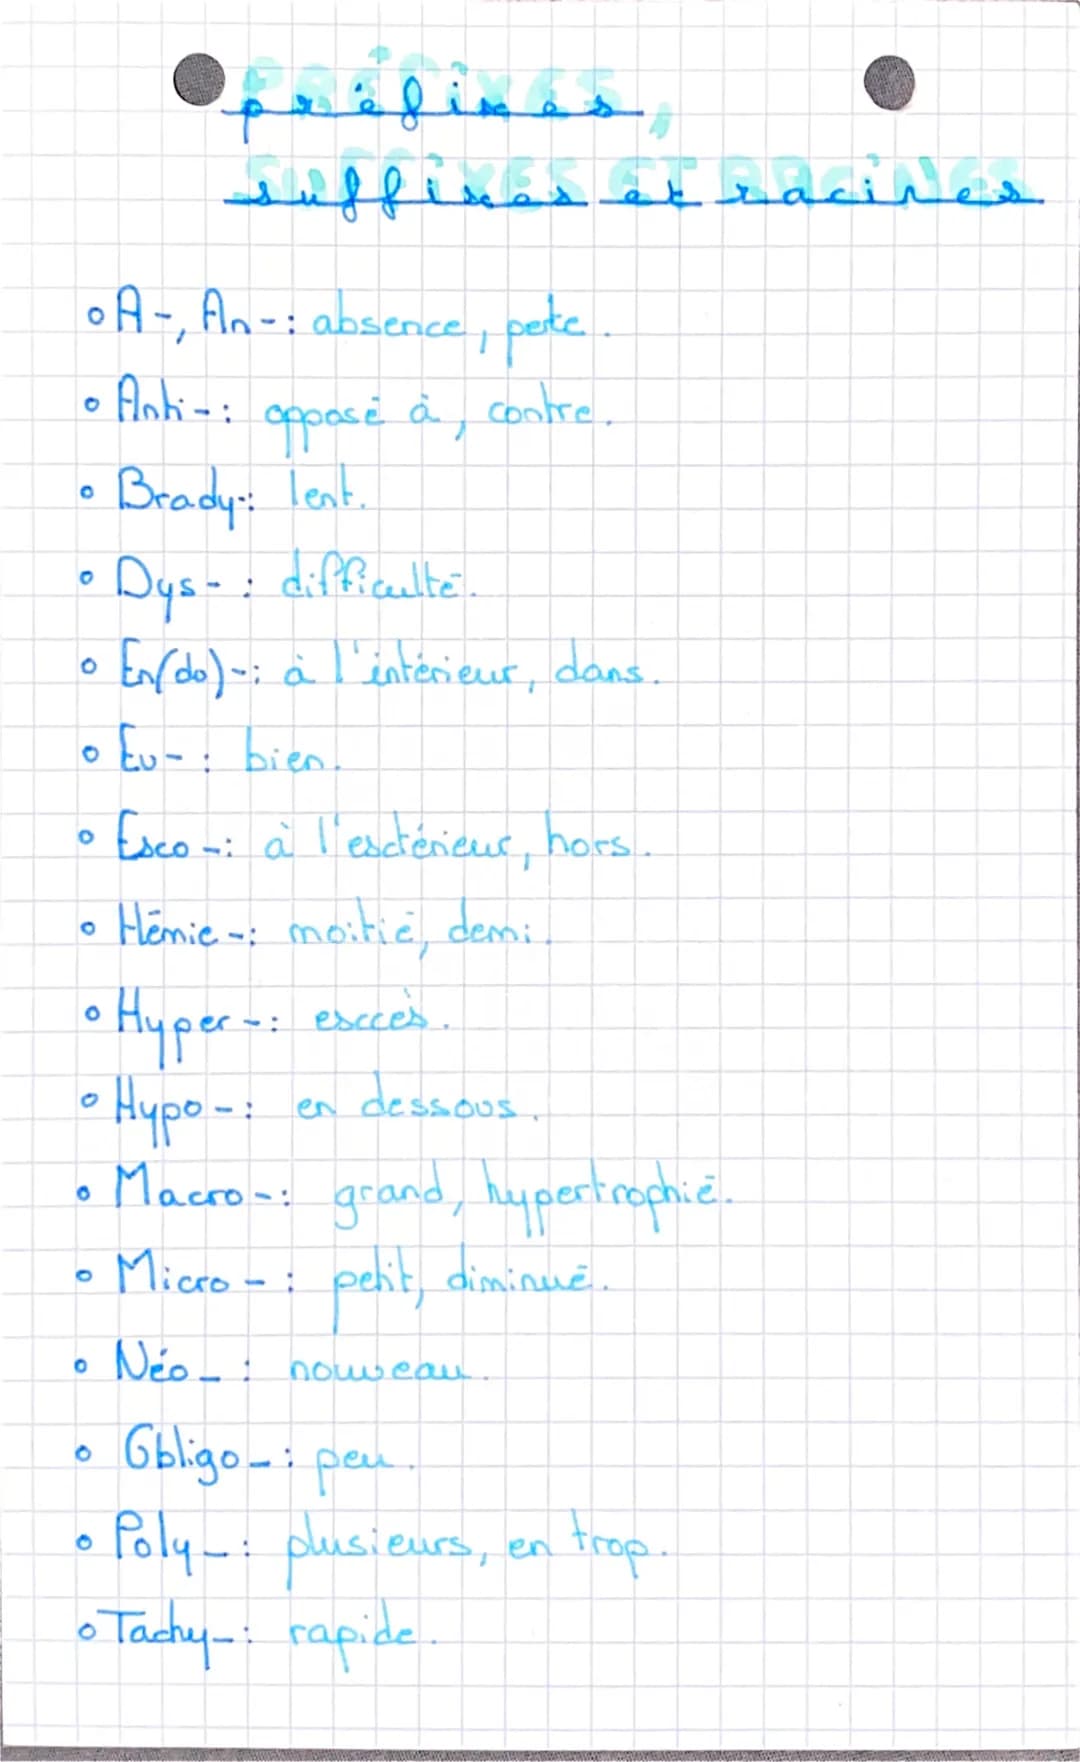 préfixes,
suffixes et racines
o A-, An-: absence, perte.
o Anti-: opposé à, contre.
o Brady-: lent.
o Dys-: difficulté.
o En(do)-: à l'intérieur, dans.
o Eu-: bien.
o Exo-: à l'extérieur, hors.
o Hémie-: moitié, demi.
o Hyper-: excès.
o Hypo-: en dessous.
o Macro-: grand, hypertrophié.
o Micro-: petit, diminué.
o Néo-: nouveau.
o Obligo-: peu.
o Poly-: plusieurs, en trop.
o Tachy-: rapide.